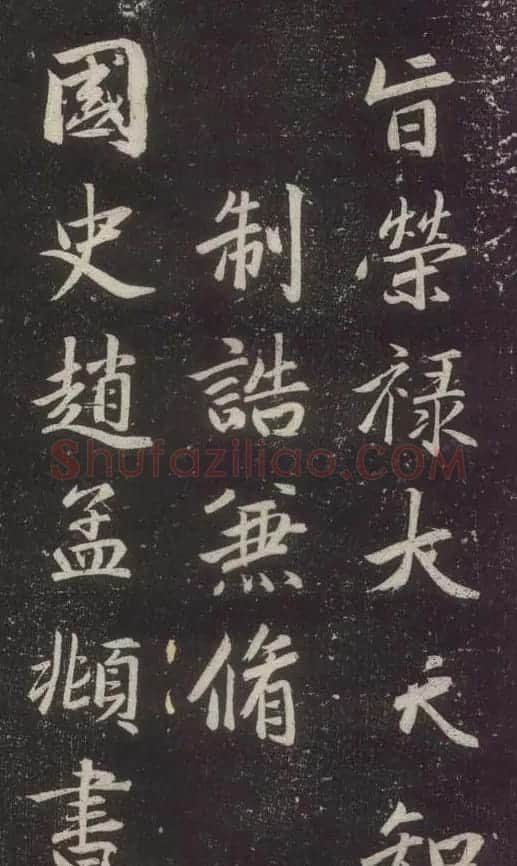 旨榮禄大夫知
制誥兼脩
國史趙孟頫書
Shufaziliao.COM